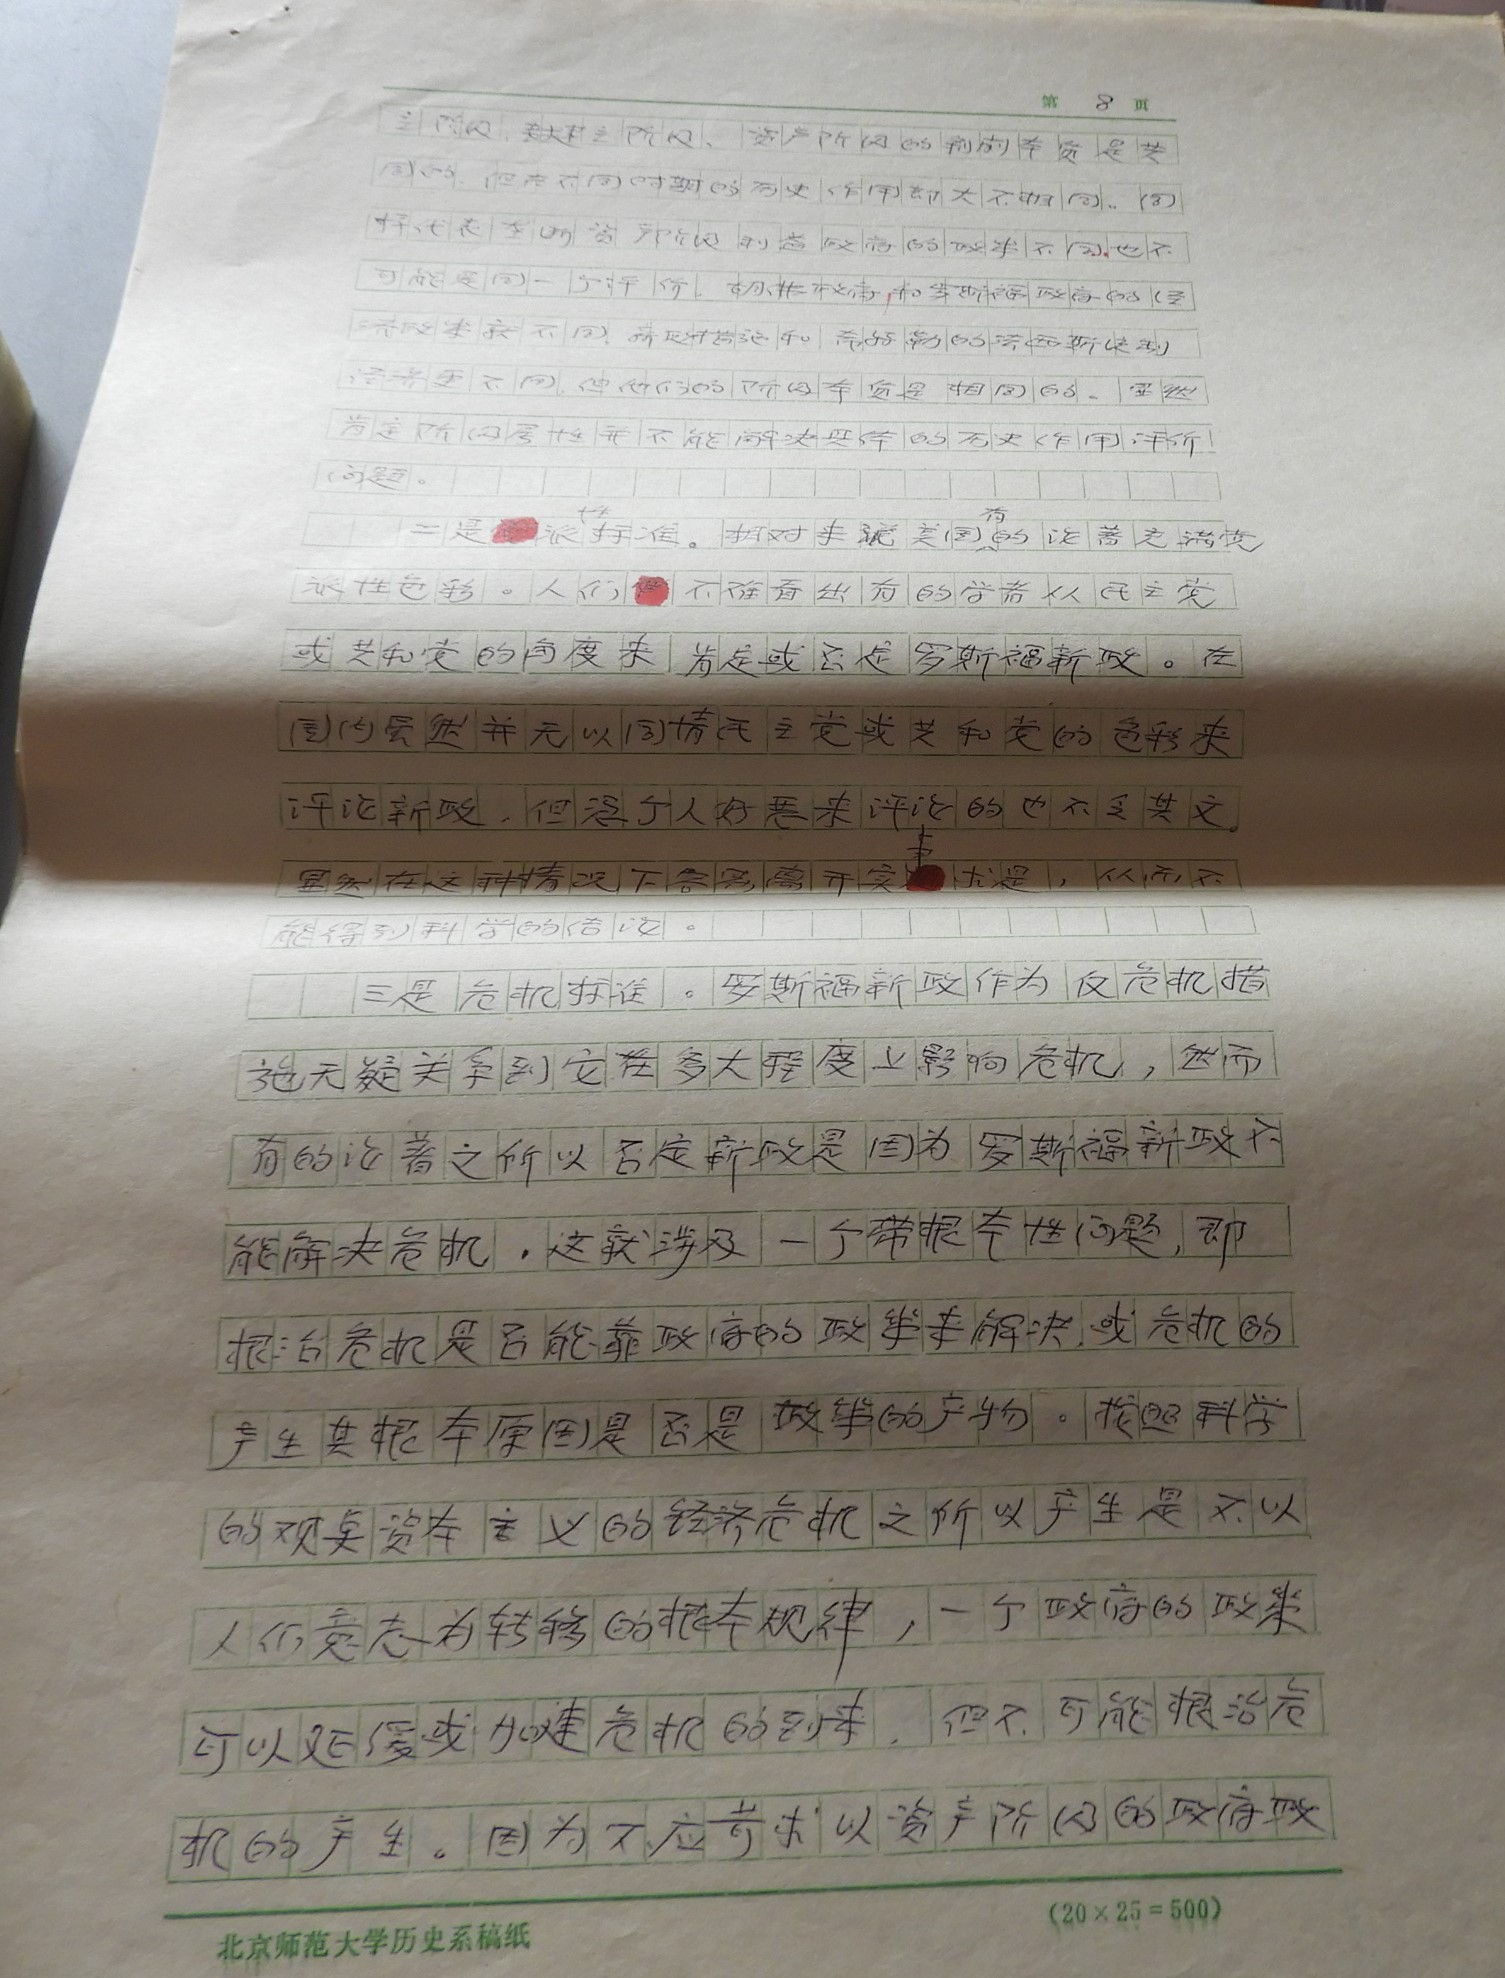 第 8 页
主阶级、地主阶级、资产阶级的剥削本质是共
同的，但在不同时期的历史作用却大不相同。同
样代表垄断资产阶级利益政府的政策不同，也不
可能是同一个评价。胡佛政府和罗斯福政府的经
济政策就不同，新政措施和希特勒的法西斯
更不同，但他们的阶级本质是相同的。显然
肯定阶级属性并不能解决具体的历史作用评价
问题。
二是派性标准。相对来说美国有的论著充满党
派性色彩。人们不难看出有的学者从民主党
或共和党的角度来肯定或否定罗斯福新政。在
国内虽然并无以同情民主党或共和党的色彩来
评论新政，但凭个人好恶来评论的也不乏其文。
显然在这种情况下容易离开实事求是，从而不
能得到科学的结论。
三是危机标准。罗斯福新政作为反危机措
施无疑关系到它在多大程度上影响危机，然而
有的论著之所以否定新政是因为罗斯福新政不
能解决危机。这就涉及一个带根本性问题，即
根治危机是否能靠政府的政策来解决，或危机的
产生其根本原因是否是政策的产物。按照科学
的观点资本主义的经济危机之所以产生是不以
人们意志为转移的根本规律，一个政府的政策
可以延缓或加速危机的到来，但不可能根治危
机的产生。因为不应苛求以资产阶级的政府政
北京师范大学历史系稿纸
(20×25=500)